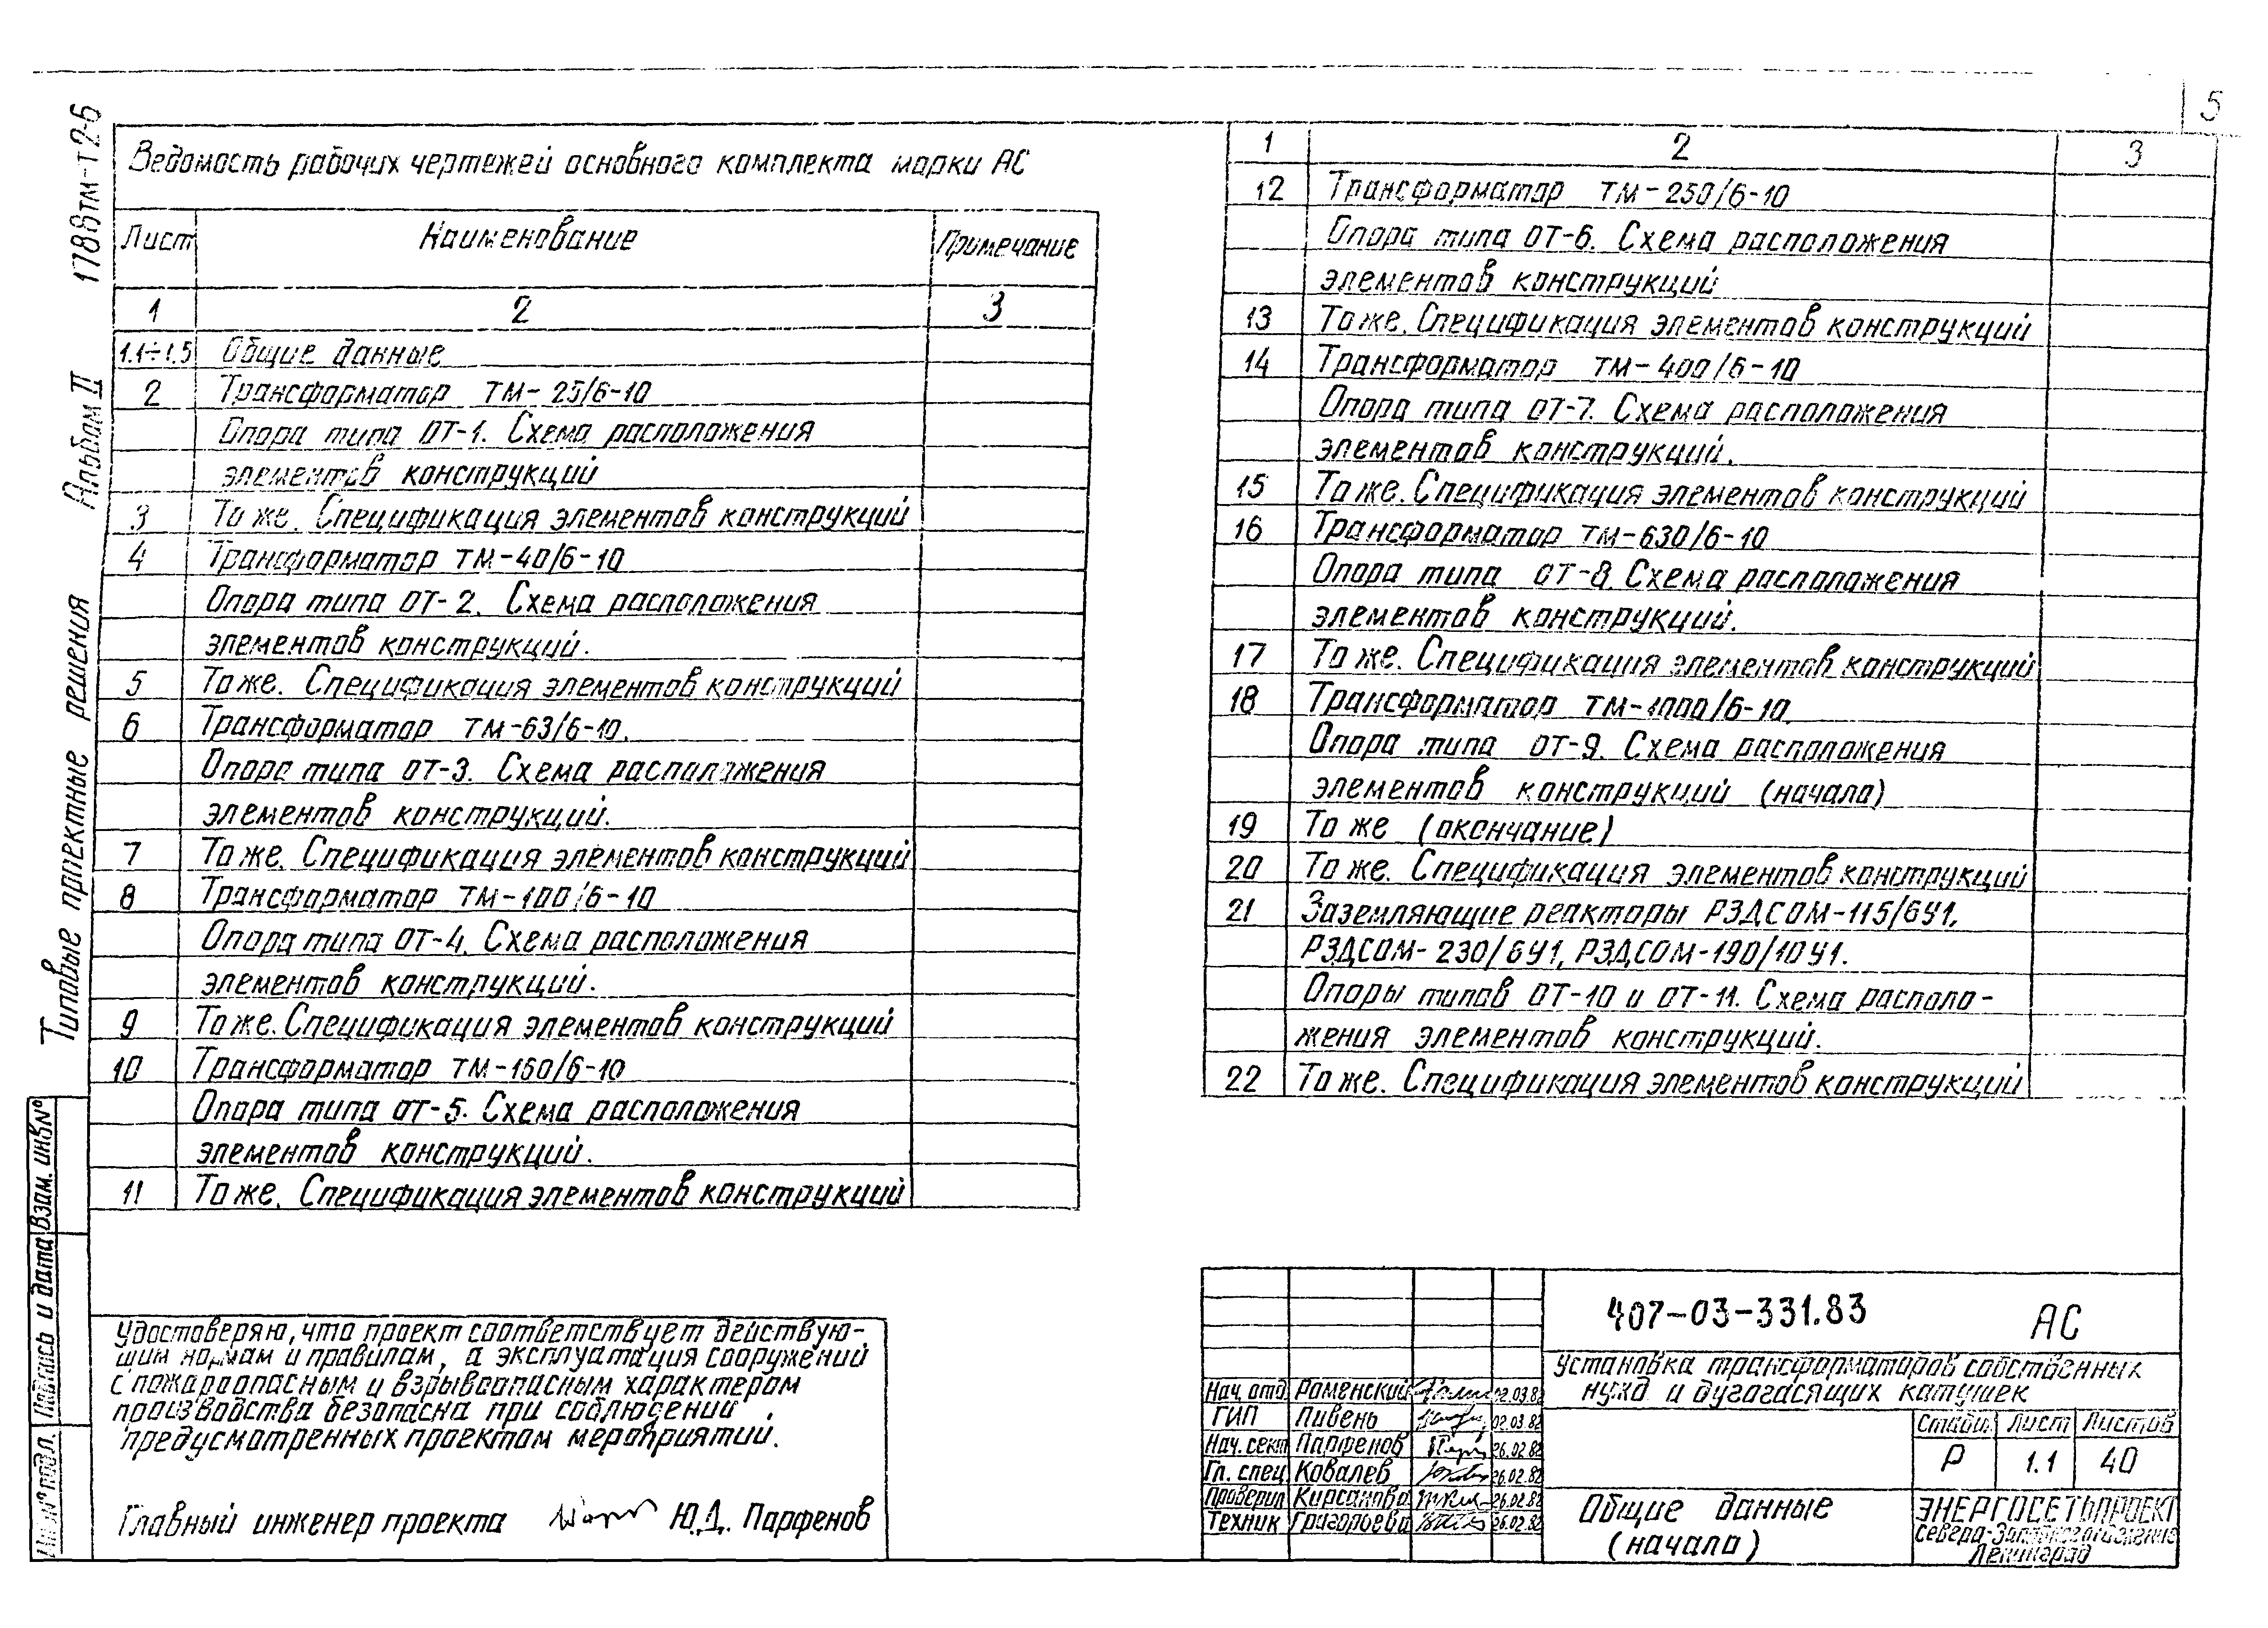 5
1788тм-т2-6
Альбом II
Типовые проектные решения
Ведомость рабочих чертежей основного комплекта марки АС
Лист Наименование Примечание
1 2 3
1.1÷1.5 Общие данные
2 Трансформатор ТМ-25/6-10
Опора типа ОТ-1. Схема расположения
элементов конструкций
3 То же. Спецификация элементов конструкций
4 Трансформатор ТМ-40/6-10
Опора типа ОТ-2. Схема расположения
элементов конструкций.
5 То же. Спецификация элементов конструкций
6 Трансформатор ТМ-63/6-10.
Опора типа ОТ-3. Схема расположения
элементов конструкций.
7 То же. Спецификация элементов конструкций
8 Трансформатор ТМ-100/6-10
Опора типа ОТ-4. Схема расположения
элементов конструкций.
9 То же. Спецификация элементов конструкций
10 Трансформатор ТМ-160/6-10
Опора типа ОТ-5. Схема расположения
элементов конструкций.
11 То же. Спецификация элементов конструкций
1 2 3
12 Трансформатор ТМ-250/6-10
Опора типа ОТ-6. Схема расположения
элементов конструкций
13 То же. Спецификация элементов конструкций
14 Трансформатор ТМ-400/6-10
Опора типа ОТ-7. Схема расположения
элементов конструкций.
15 То же. Спецификация элементов конструкций
16 Трансформатор ТМ-630/6-10
Опора типа ОТ-8. Схема расположения
элементов конструкций.
17 То же. Спецификация элементов конструкций
18 Трансформатор ТМ-1000/6-10.
Опора типа ОТ-9. Схема расположения
элементов конструкций (начало)
19 То же (окончание)
20 То же. Спецификация элементов конструкций
21 Заземляющие реакторы РЗДСОМ-115/6У1,
РЗДСОМ-230/6У1, РЗДСОМ-190/10У1.
Опоры типов ОТ-10 и ОТ-11. Схема располо-
жения элементов конструкций.
22 То же. Спецификация элементов конструкций
Удостоверяю, что проект соответствует действую-
щим нормам и правилам, а эксплуатация сооружений
с пожароопасным и взрывоопасным характером
производства безопасна при соблюдении
предусмотренных проектом мероприятий.
Главный инженер проекта Ю.Д. Парфенов
Инв.№ подл. Подпись и дата Взам. инв№
407-03-331.83 АС
Установка трансформаторов собственных
нужд и дугогасящих катушек
Нач. отд. Раменский 02.03.82
ГИП Пивень 02.03.82
Нач. сект Парфенов 26.02.82
Гл. спец. Ковалев 26.02.82
Проверил Кирсанова 26.02.82
Техник Григорьева 26.02.82
Стади. Лист Листов
Р 1.1 40
Общие данные
(начало)
ЭНЕРГОСЕТЬПРОЕКТ
Северо-Западное отделение
Ленинград